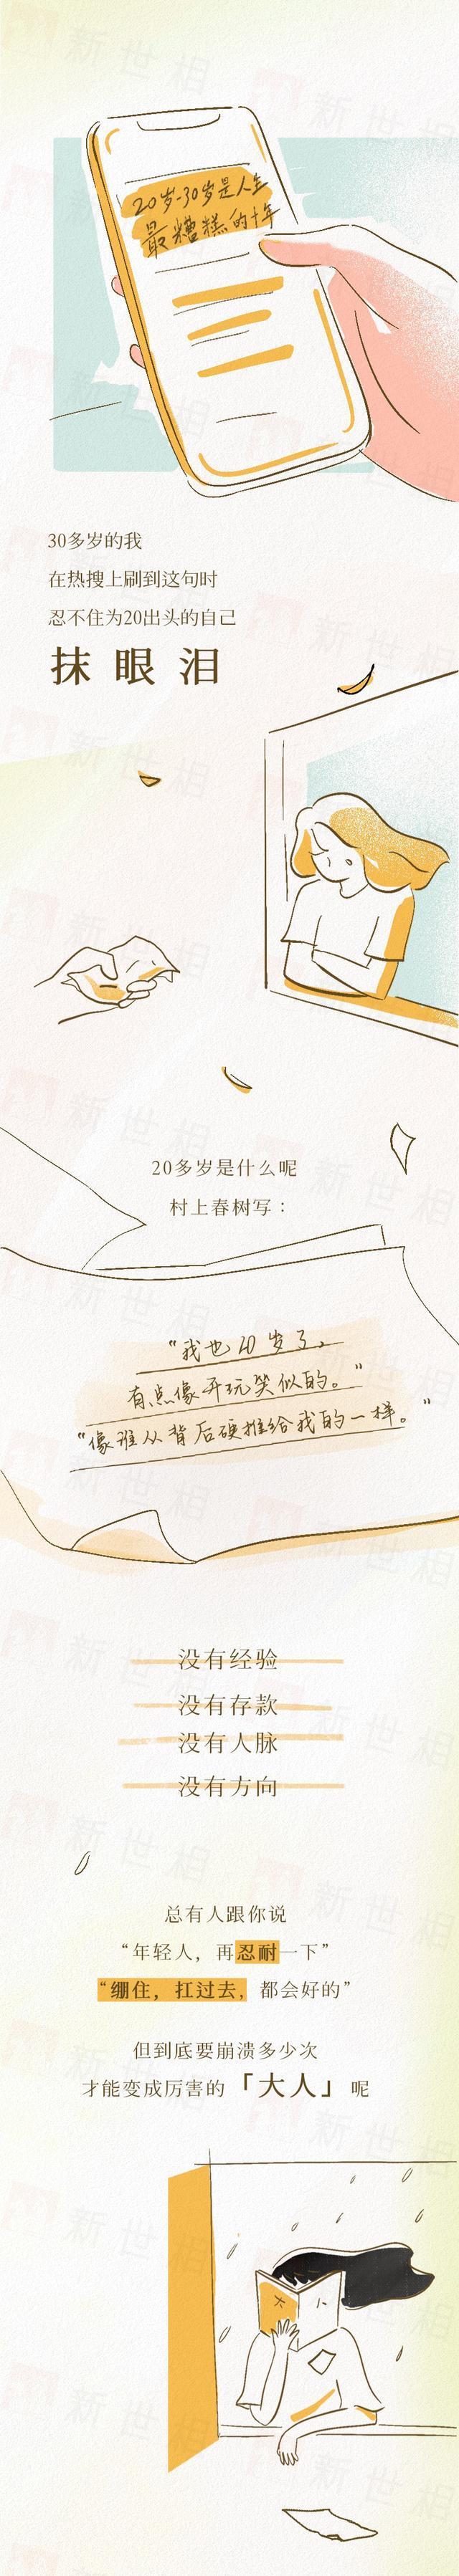 20岁-30岁是人生
最糟糕的十年
30多岁的我
在热搜上刷到这句时
忍不住为20出头的自己
抹眼泪
20多岁是什么呢
村上春树写：
“我也20岁了，
有点像开玩笑似的。”
“像谁从背后硬推给我的一样。”
没有经验
没有存款
没有人脉
没有方向
总有人跟你说
“年轻人，再忍耐一下”
“绷住，扛过去，都会好的”
但到底要崩溃多少次
才能变成厉害的「大人」呢
大人
新世相